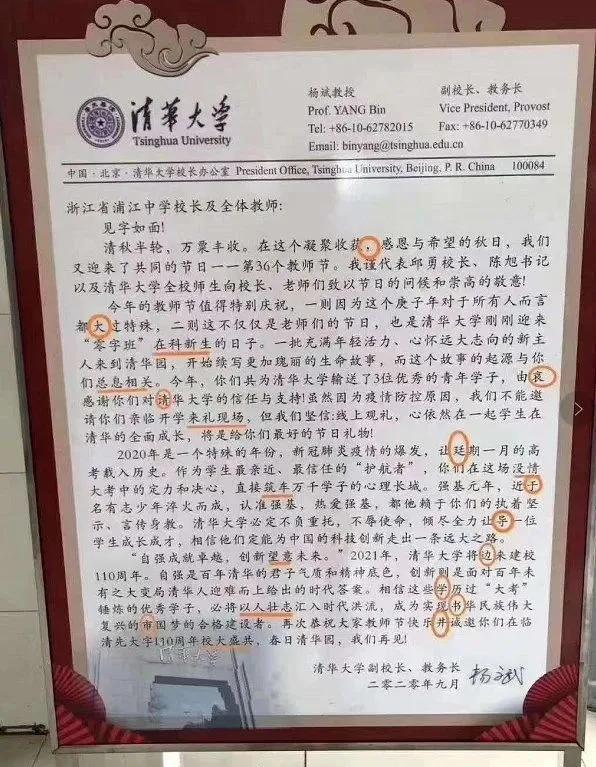 清华大学
Tsinghua University
杨斌教授
Prof. YANG Bin
Tel: +86-10-62782015
Email: binyang@tsinghua.edu.cn
副校长、教务长
Vice President, Provost
Fax: +86-10-62770349
中国·北京·清华大学校长办公室 President Office, Tsinghua University, Beijing, P. R. China 100084
浙江省浦江中学校长及全体教师:
见字如面!
清秋半轮,万粟丰收。在这个凝聚收获,感恩与希望的秋日,我们
又迎来了共同的节日一一第36个教师节。我谨代表邱勇校长、陈旭书记
以及清华大学全校师生向校长、老师们致以节日的问候和崇高的敬意!
今年的教师节值得特别庆祝,一则因为这个庚子年对于所有人而言
都大过特殊,二则这不仅仅是老师们的节日,也是清华大学刚刚迎来
“零字班”在科新生的日子。一批充满年轻活力、心怀远大志向的新主
人来到清华园,开始续写更加瑰丽的生命故事,而这个故事的起源与你
们总息相关。今年,你们共为清华大学输送了3位优秀的青年学子,由哀
感谢你们对清华大学的信任与支持!虽然因为疫情防控原因,我们不能邀
请你们亲临开学来礼现场,但我们坚信:线上观礼,心依然在一起学生在
清华的全面成长,将是给你们最好的节日礼物!
2020年是一个特殊的年份,新冠肺炎疫情的爆发,让廷期一月的高
考载入历史。作为学生最亲近、最信任的“护航者”,你们在这场没情
大考中的定力和决心,直接筑车万千学子的心理长城。强基元年,近于
名有志少年淬火而成,认准强基,热爱强基,都他赖于你们的执着坚
示、言传身教。清华大学必定不负重托,不辱使命,倾尽全力让导一位
学生成长成才,相信他们定能为中国的科技创新走出一条远大之路。
“自强成就卓越,创新望意未来。”2021年,清华大学将边来建校
110周年。自强是百年清华的君子气质和精神底色,创新则是面对百年未
有之大变局清华人迎难而上给出的时代答案。相信这些学历过“大考”
锤炼的优秀学子,必将以人壮志汇入时代洪流,成为实现书华民族伟大
复兴的审国梦的合格建设者。再次恭祝大家教师节快乐井诚邀你们在临
清先大字110周年校大盛共,春日清华园,我们再见!
清华大学副校长、教务长
二零二零年九月
杨斌